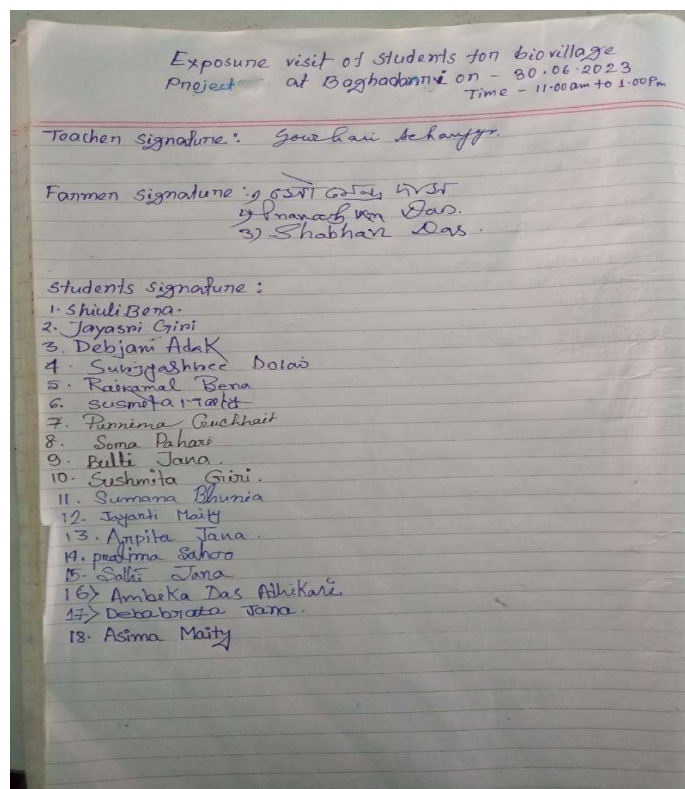 Exposure visit of students for biovillage
Project at Baghadanri on - 30.06.2023
Time - 11.00 am to 1.00 Pm
Teacher signature:
Farmer signature: 1)
2) Das.
3) Shobhan Das.
Students signature:
1. Shiuli Bera.
2. Jayasri Giri
3. Debjani Adak
4. Dolai
5. Raikamal Bera
6. Susmita Maity
7. Purnima Guchhait
8. Soma Pahari
9. Bulti Jana.
10. Sushmita Giri.
11. Sumana Bhunia
12. Jayanti Maity
13. Arpita Jana.
14. pratima Sahoo
15. Jana
16) Ambika Das Adhikari
17) Debabrata Jana.
18. Asima Maity